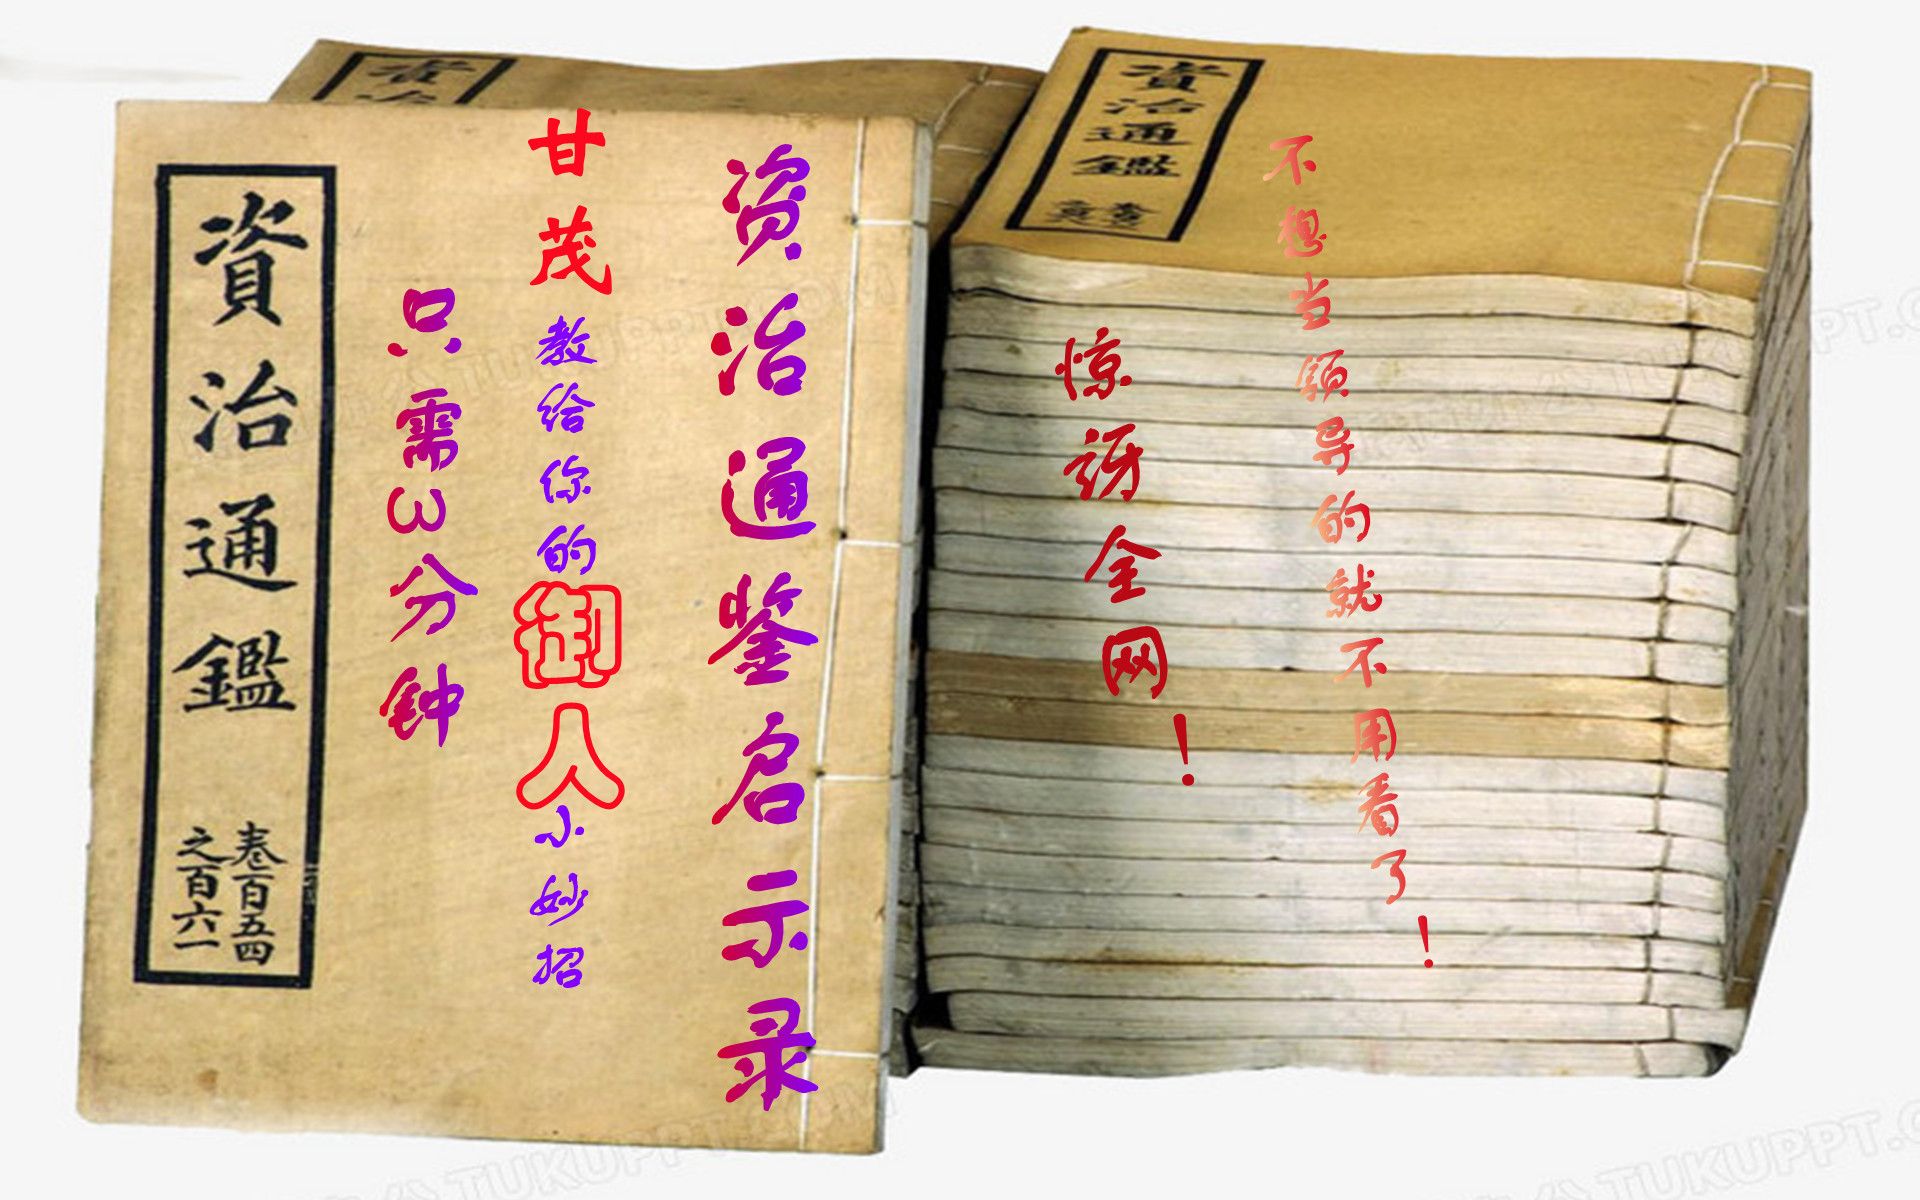 資治
資治通鑑
卷
資治通鑑
卷百五四
之百六一
资治通鉴启示录
甘茂教给你的御人小妙招
只需3分钟
惊讶全网！
不想当领导的就不用看了！
TUKUPPT.COM
TUKUPPT.C
TUKUPPT
TUKUPPT.C